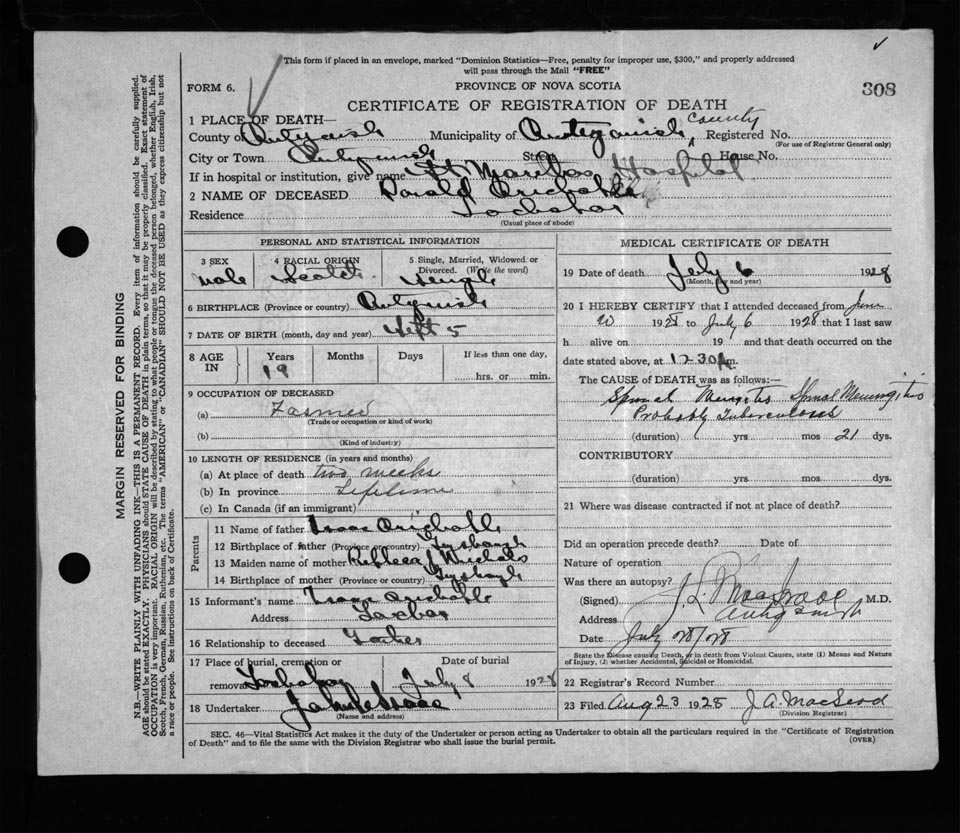 This form if placed in an envelope, marked "Dominion Statistics—Free, penalty for improper use, $300," and properly addressed
will pass through the Mail "FREE"
FORM 6.
PROVINCE OF NOVA SCOTIA
308
CERTIFICATE OF REGISTRATION OF DEATH
1 PLACE OF DEATH—
County of Municipality of Antigonish County Registered No.
(For use of Registrar General only)
City or Town Street House No.
If in hospital or institution, give name St Marthas Hospital
2 NAME OF DECEASED Donald
Residence Lochaber
(Usual place of abode)
PERSONAL AND STATISTICAL INFORMATION
3 SEX 4 RACIAL ORIGIN 5 Single, Married, Widowed or Divorced. (Write the word)
Male Scotch Single
6 BIRTHPLACE (Province or country)
7 DATE OF BIRTH (month, day and year) Sept 5
8 AGE IN Years Months Days If less than one day,
19 hrs. or min.
9 OCCUPATION OF DECEASED
(a) Farmer
(Trade or occupation or kind of work)
(b)
(Kind of industry)
10 LENGTH OF RESIDENCE (in years and months)
(a) At place of death two weeks
(b) In province Lifetime
(c) In Canada (if an immigrant)
Parents
11 Name of father Isaac
12 Birthplace of father (Province or country)
13 Maiden name of mother Rebecca Nichols
14 Birthplace of mother (Province or country)
15 Informant's name Isaac
Address Lochaber
16 Relationship to deceased Father
17 Place of burial, cremation or removal Lochaber Date of burial July 8 1928
18 Undertaker
(Name and address)
MEDICAL CERTIFICATE OF DEATH
19 Date of death July 6 1928
(Month, day and year)
20 I HEREBY CERTIFY that I attended deceased from June
1928 to July 6 1928 that I last saw
h alive on 19 and that death occurred on the
date stated above, at 12-30 m.
The CAUSE OF DEATH was as follows:—
Spinal Spinal Meningitis
Probably Tuberculous
(duration) yrs. mos 21 dys.
CONTRIBUTORY
(duration) yrs. mos. dys.
21 Where was disease contracted if not at place of death?
Did an operation precede death? Date of
Nature of operation
Was there an autopsy?
(Signed) M.D.
Address Antigonish
Date July 28/28
State the Disease causing Death, or in death from Violent Causes, state (1) Means and Nature
of Injury, (2) whether Accidental, Suicidal or Homicidal.
22 Registrar's Record Number
23 Filed Aug 23 1928 J. A. MacLeod
(Division Registrar)
SEC. 46—Vital Statistics Act makes it the duty of the Undertaker or person acting as Undertaker to obtain all the particulars required in the "Certificate of Registration
of Death" and to file the same with the Division Registrar who shall issue the burial permit.
(OVER)
MARGIN RESERVED FOR BINDING
N.B.—WRITE PLAINLY WITH UNFADING INK—THIS IS A PERMANENT RECORD. Every item of information should be carefully supplied.
AGE should be stated EXACTLY. PHYSICIANS should STATE CAUSE OF DEATH in plain terms, so that it may be properly classified. Exact statement of
OCCUPATION is very important. RACIAL ORIGIN will be described by stating to what people or tongue the deceased person belonged, whether English, Irish,
Scotch, French, German, Russian, Ruthenian, etc. The terms "AMERICAN" or "CANADIAN" SHOULD NOT BE USED as they express citizenship but not
a race or people. See instructions on back of Certificate.